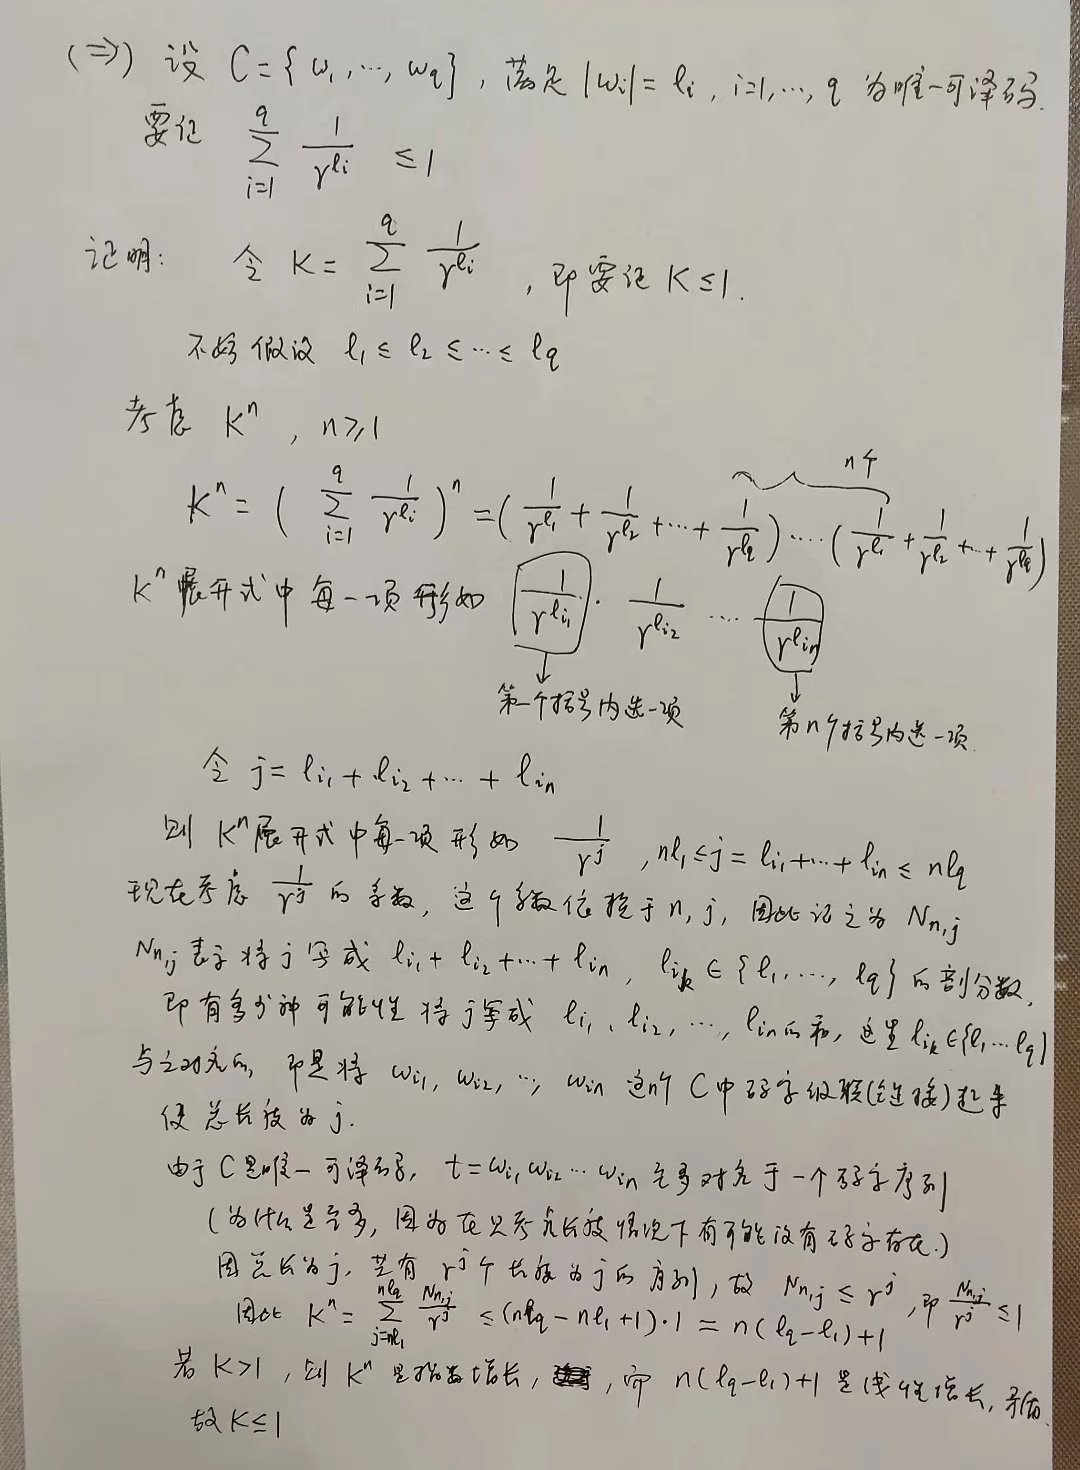 (⇒) 设 C = { w₁, ⋯, w_q }, 满足 |wᵢ| = lᵢ, i=1, ⋯, q 为唯一可译码.
要证 ∑_{i=1}^{q} 1/r^{lᵢ} ≤ 1
证明: 令 K = ∑_{i=1}^{q} 1/r^{lᵢ}, 即要证 K ≤ 1.
不妨假设 l₁ ≤ l₂ ≤ ⋯ ≤ l_q
考虑 Kⁿ, n ≥ 1
n个
Kⁿ = ( ∑_{i=1}^{q} 1/r^{lᵢ} )ⁿ = ( 1/r^{l₁} + 1/r^{l₂} + ⋯ + 1/r^{l_q} ) ⋯⋅ ( 1/r^{l₁} + 1/r^{l₂} + ⋯ + 1/r^{l_q} )
Kⁿ 展开式中每一项形如 1/r^{l_{i₁}} · 1/r^{l_{i₂}} ⋯ 1/r^{l_{iₙ}}
第一个括号内选一项 第n个括号内选一项.
令 j = l_{i₁} + l_{i₂} + ⋯ + l_{iₙ}
则 Kⁿ 展开式中每一项形如 1/r^j, nl₁ ≤ j = l_{i₁} + ⋯ + l_{iₙ} ≤ nl_q
现在考虑 1/r^j 的系数, 这个系数依赖于 n, j, 因此记之为 N_{n,j}
N_{n,j} 表示将 j 写成 l_{i₁} + l_{i₂} + ⋯ + l_{iₙ}, l_{i_k} ∈ { l₁, ⋯, l_q } 的剖分数,
即有多少种可能性将 j 写成 l_{i₁}, l_{i₂}, ⋯, l_{iₙ} 的和, 这里 l_{i_k} ∈ { l₁ ⋯ l_q }
与之对应的, 即是将 w_{i₁}, w_{i₂}, ⋯, w_{iₙ} 这n个 C 中码字级联(连接)起来
使总长度为 j.
由于 C 是唯一可译码, t = w_{i₁} w_{i₂} ⋯ w_{iₙ} 至多对应于一个码字序列
(为什么是至多, 因为在只考虑长度情况下有可能没有码字存在.)
因总长为 j, 共有 r^j 个长度为 j 的序列, 故 N_{n,j} ≤ r^j, 即 N_{n,j}/r^j ≤ 1
因此 Kⁿ = ∑_{j=nl₁}^{nl_q} N_{n,j}/r^j ≤ (nl_q − nl₁ + 1)·1 = n(l_q − l₁) + 1
若 K > 1, 则 Kⁿ 是指数增长, 而 n(l_q − l₁) + 1 是线性增长, 矛盾.
故 K ≤ 1